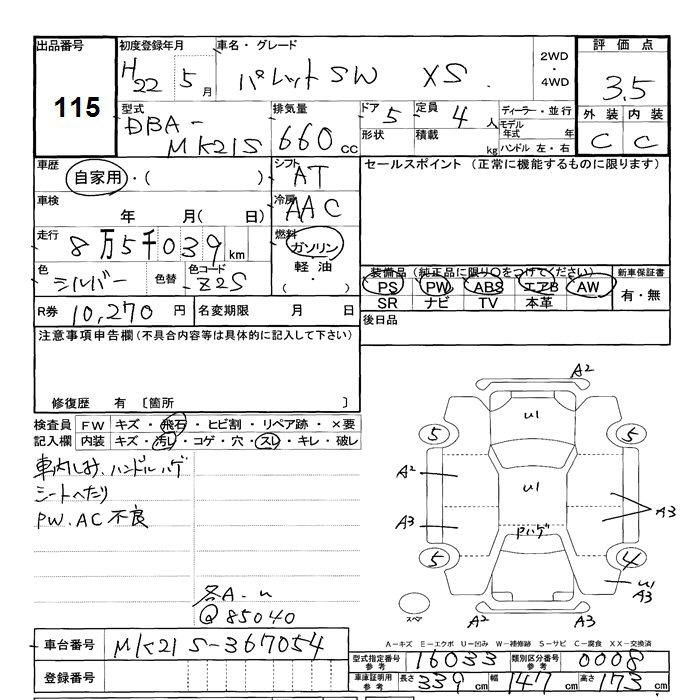 出品番号 初度登録年月 車名・グレード 2WD・4WD 評価点
115 H22 5月 パレットSW XS 3.5
型式 排気量 ドア 5 定員 4人 ディーラー・並行 外装 内装
DBA-MK21S 660cc 形状 積載 kg モデル年式 年 C C
ハンドル 左・右
車歴 自家用・( ) シフト AT セールスポイント (正常に機能するものに限ります)
車検 年 月( 日) 冷房 AAC
走行 8万5千039km 燃料 ガソリン
軽油
( ・ )
色 シルバー 色替 色コード Z2S 装備品 (純正品に限り○をつけてください) 新車保証書
PS PW ABS エアB AW 有・無
SR ナビ TV 本革
R券 10,270円 名変期限 月 日 後日品
注意事項申告欄(不具合内容等は具体的に記入して下さい)
修復歴 有 〔箇所 〕
検査員 FW キズ・飛石・ヒビ割・リペア跡・×要
記入欄 内装 キズ・汚レ・コゲ・穴・スレ・キレ・破レ
車内しみ、ハンドルハゲ
シートへたり
PW、AC不良
各A・u
Q85040
A2
U1
5 5
A2
U1
A3 A3
Pハゲ
5 4
A3
スペ A2 A3
A-キズ E-エクボ U-凹み W-補修跡 S-サビ C-腐食 XX-交換済
車台番号 MK21S-367054
登録番号
型式指定番号 参考 16033 類別区分番号 参考 0008
車庫証明用 参考 長さ 339cm 幅 147cm 高さ 173cm